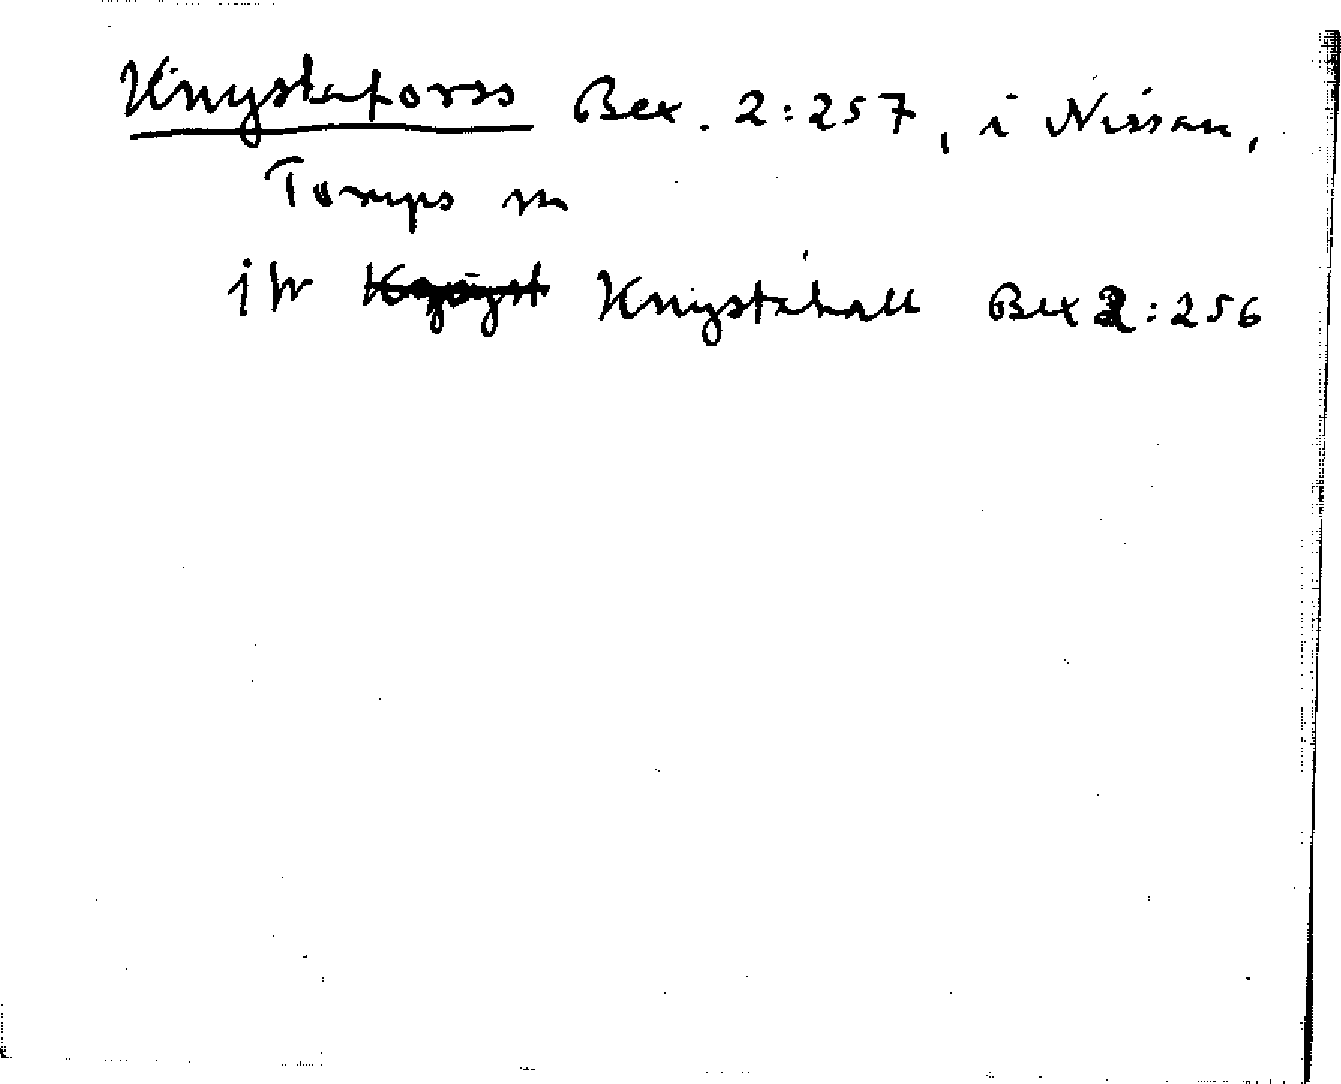 Knystaforss Bex. 2:257, i Nissan,
Torups sn
jfr Knystahall Bex 2:256